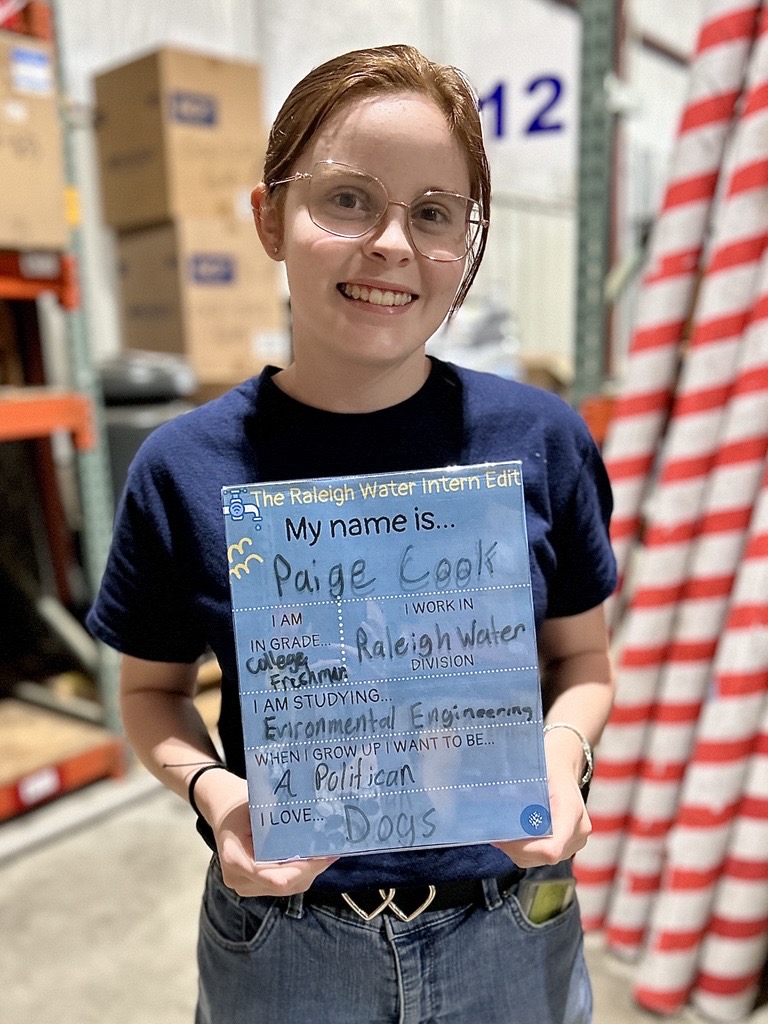 12
The Raleigh Water Intern Edit
My name is...
Paige Cook
I AM
IN GRADE...
College
Freshman
I WORK IN
Raleigh Water
DIVISION
I AM STUDYING...
Enironmental Engineering
WHEN I GROW UP I WANT TO BE...
A Polifican
I LOVE...
Dogs